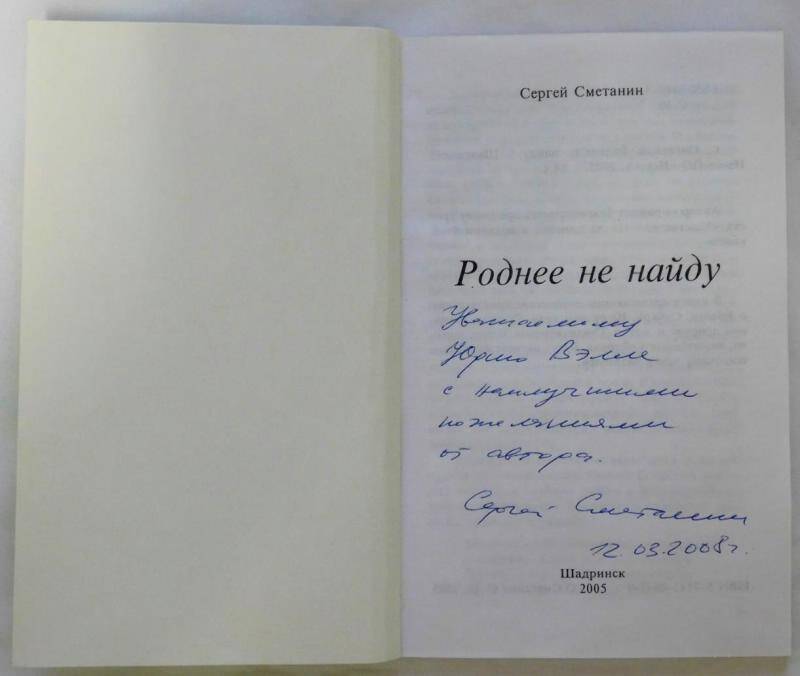 Сергей Сметанин
Роднее не найду
Уважаемому
Юрию Вэлле
с наилучшими
пожеланиями
от автора.
Сергей Сметанин
12.03.2008г.
Шадринск
2005